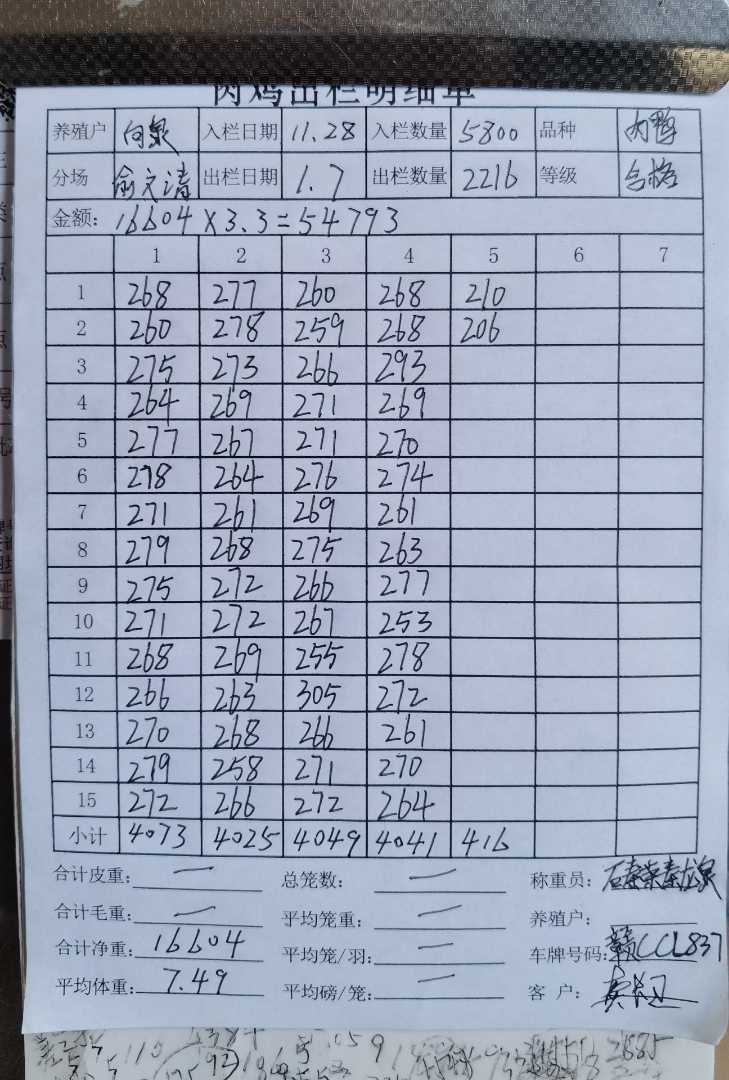 肉鸡出栏明细单
养殖户 向泉 入栏日期 11.28 入栏数量 5800 品种 肉鸭
分场 俞文清 出栏日期 1.7 出栏数量 2216 等级 合格
金额: 16604×3.3=54793
1 2 3 4 5 6 7
1 268 277 260 268 210
2 260 278 259 268 206
3 275 273 266 293
4 264 269 271 269
5 277 267 271 270
6 278 264 276 274
7 271 261 269 261
8 279 268 275 263
9 275 272 266 277
10 271 272 267 253
11 268 269 255 278
12 266 263 305 272
13 270 268 266 261
14 279 258 271 270
15 272 266 272 264
小计 4073 4025 4049 4041 416
合计皮重: — 总笼数: — 称重员:
合计毛重: — 平均笼重: — 养殖户:
合计净重: 16604 平均笼/羽: — 车牌号码: 赣CCL837
平均体重: 7.49 平均磅/笼: — 客 户: